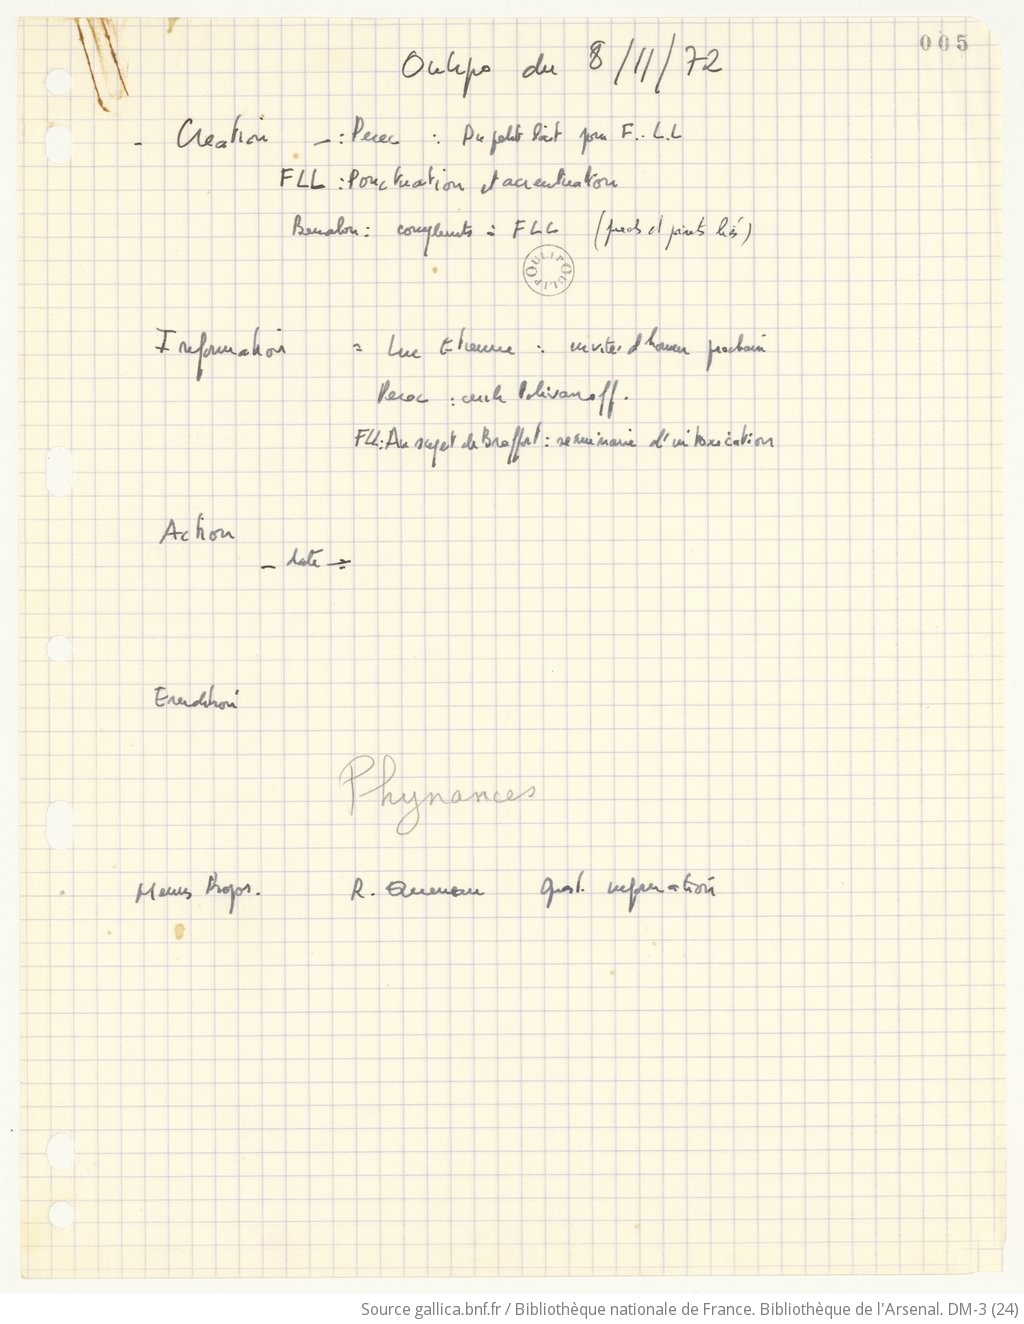 005
Oulipo du 8/11/72
- Creation - : Perec : Du petit lait pour F. L.L
FLL : Ponctuation et accentuation
Benabou : compliments = FLL (pieds et poings liés)
OULIPO OULIPO
Information = Luc Etienne : invités d'honneur prochain
Perec : cercle Polivanoff.
FLL : Au sujet de Braffort : seminaire d'intoxication
Action
- date =
Erudition
Phynances
Menus Propos. R. Queneau Quest. information
Source gallica.bnf.fr / Bibliothèque nationale de France. Bibliothèque de l'Arsenal. DM-3 (24)